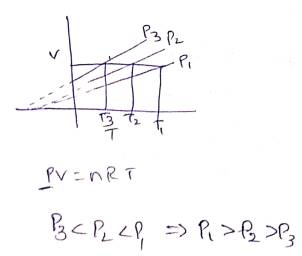 P3 P2
V
P1
T3 T2 T1
T
PV = nRT
P3 < P2 < P1 ⇒ P1 > P2 > P3